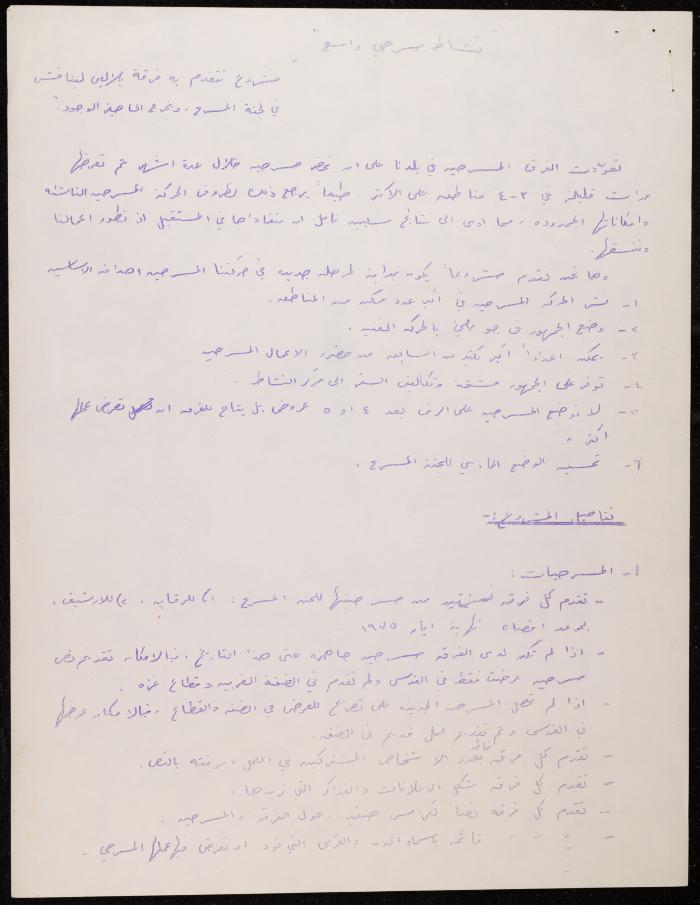 "نشاط مسرحي واسع"
"مشروع تتقدم به فرقة بلالين ليناقش
في لجنة المسرح، ويخرج الى حيز الوجود."
تعودت الفرق المسرحيه في بلدنا على ان تحضر مسرحيه خلال عدة اشهر ثم تعرضها
مرات قليلة في ٣-٤ مناطق على الاكثر. طبعاً يرجع ذلك لظروف الحركة المسرحيه الناشئه
وامكاناتها المحدوده، مما ادى الى نتائج سلبيه نأمل ان نتفاداها في المستقبل اذ نطور اعمالنا
وننسقها.
وها نحن نقدم مشروعاً يكون بداية لمرحله جديده في حركتنا المسرحيه اهدافه الاساسيه
١- نشر الحركه المسرحيه في اكبر عدد ممكن من المناطق.
٢- وضع الجمهور في جو بالحركه الفنيه.
٣- يمكن اعداداً اكبر بكثير من السابق من حضور الاعمال المسرحيه
٤- توفر على الجمهور مشقة وتكاليف السفر الى مركز النشاط.
٥- لا توضع المسرحيه على الرف بعد ٤ او ٥ عروض بل يتاح للفرقه ان تعرض عملها
اكثر.
٦- تحسين الوضع المادي للجنة المسرح.
تفاصيل المشروع:-
١- المسرحيات:
- تقدم كل فرقه نسختين من مسرحيتها للجنة المسرح: ١) للرقابه. ٢) للارشيف،
بموعد اقصاه نهاية ايار ١٩٧٥.
- اذا لم تكن لدى الفرقه مسرحيه جاهزه حتى هذا التاريخ، فبالامكان تقديم نص
مسرحيه عرضت فقط في القدس ولم تقدم في الضفة الغربيه وقطاع غزه.
- اذا لم تحصل المسرحيه الجديده على تصريح للعرض في الضفه والقطاع، فبالامكان عرضها
في القدس وتم تقديم عمل قديم في الضفه.
- تقدم كل فرقه قائمة بعدد الاشخاص المشتركين في العمل ومرفقه بالنص.
- تقدم كل فرقه شكل الاعلانات والتذاكر التي تريدها.
- تقدم كل فرقه نصاً لكراس صغير، حول الفرقه والمسرحيه.
- " " " قائمة باسماء المدن والقرى التي تود ان تعرض فيها عملها المسرحي.